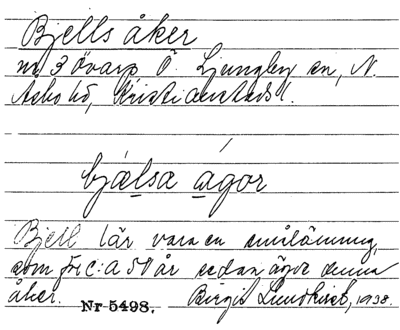 Bjells åker
nr 3 Övarp Ö. Ljungby sn, N.
Åsbo hd, Kristianstads l.
bjälsa agor
Bjell lär vara en småläning,
som för c:a 50 år sedan ägde denna
åker. Nr 5498. Birgit Lundkvist, 1938.